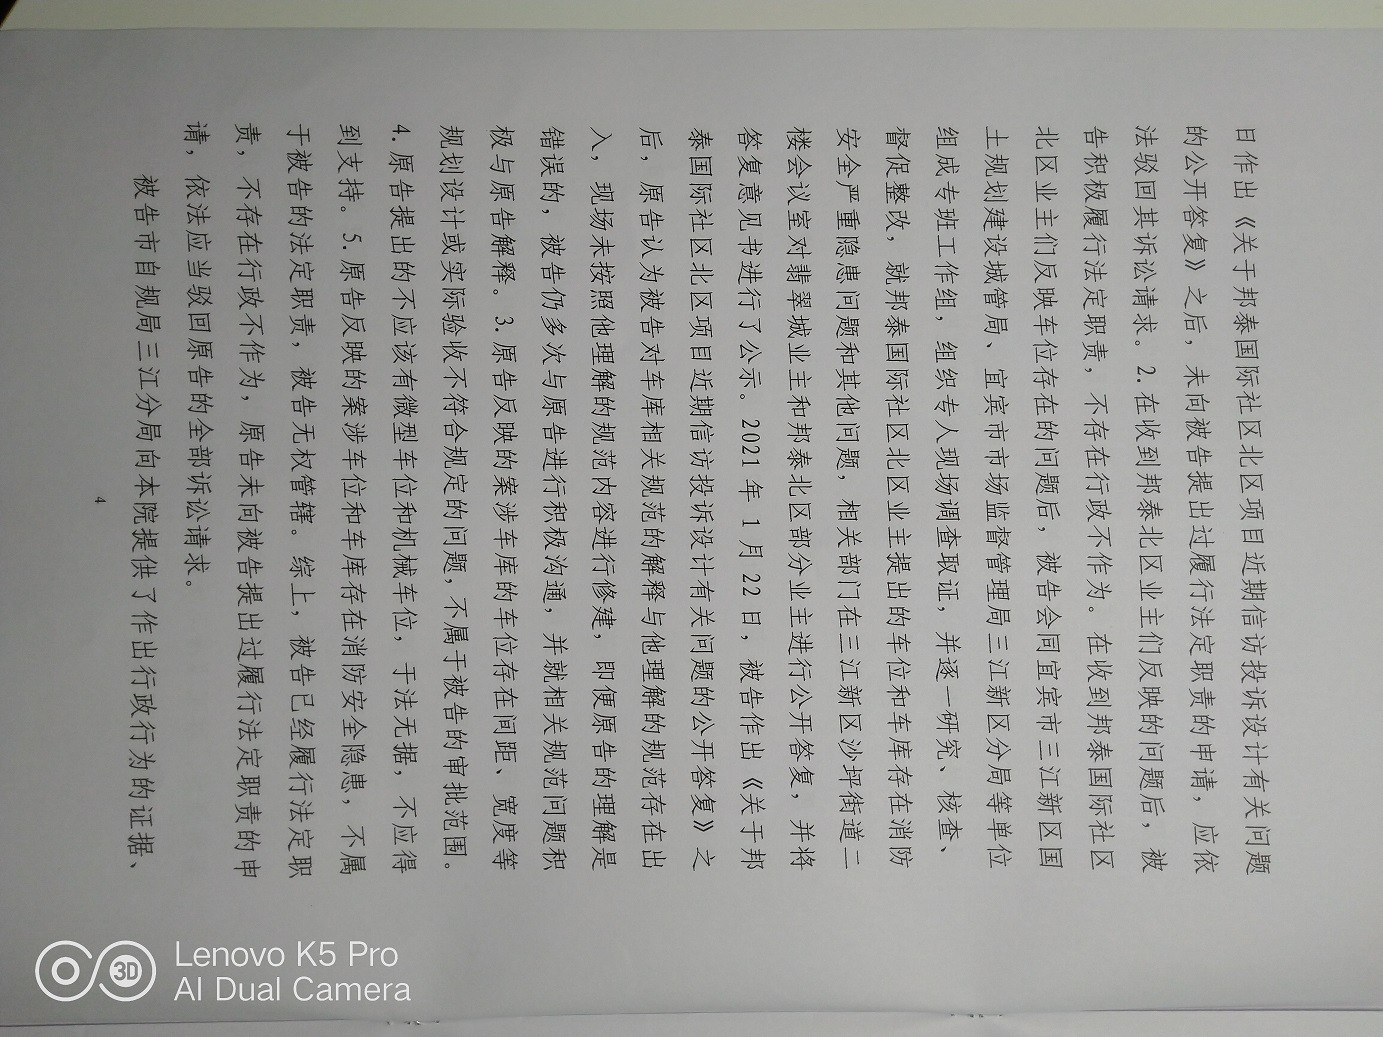 日作出《关于邦泰国际社区北区项目近期信访投诉设计有关问题
的公开答复》之后，未向被告提出过履行法定职责的申请，应依
法驳回其诉讼请求。2.在收到邦泰北区业主们反映的问题后，被
告积极履行法定职责，不存在行政不作为。在收到邦泰国际社区
北区业主们反映车位存在的问题后，被告会同宜宾市三江新区国
土规划建设城管局、宜宾市市场监督管理局三江新区分局等单位
组成专班工作组，组织专人现场调查取证，并逐一研究、核查、
督促整改，就邦泰国际社区北区业主提出的车位和车库存在消防
安全严重隐患问题和其他问题，相关部门在三江新区沙坪街道二
楼会议室对翡翠城业主和邦泰北区部分业主进行公开答复，并将
答复意见书进行了公示。2021年1月22日，被告作出《关于邦
泰国际社区北区项目近期信访投诉设计有关问题的公开答复》之
后，原告认为被告对车库相关规范的解释与他理解的规范存在出
入，现场未按照他理解的规范内容进行修建，即便原告的理解是
错误的，被告仍多次与原告进行积极沟通，并就相关规范问题积
极与原告解释。3.原告反映的案涉车库的车位存在间距、宽度等
规划设计或实际验收不符合规定的问题，不属于被告的审批范围。
4.原告提出的不应该有微型车位和机械车位，于法无据，不应得
到支持。5.原告反映的案涉车位和车库存在消防安全隐患，不属
于被告的法定职责，被告无权管辖。综上，被告已经履行法定职
责，不存在行政不作为，原告未向被告提出过履行法定职责的申
请，依法应当驳回原告的全部诉讼请求。
被告市自规局三江分局向本院提供了作出行政行为的证据、
4
3D
Lenovo K5 Pro
AI Dual Camera